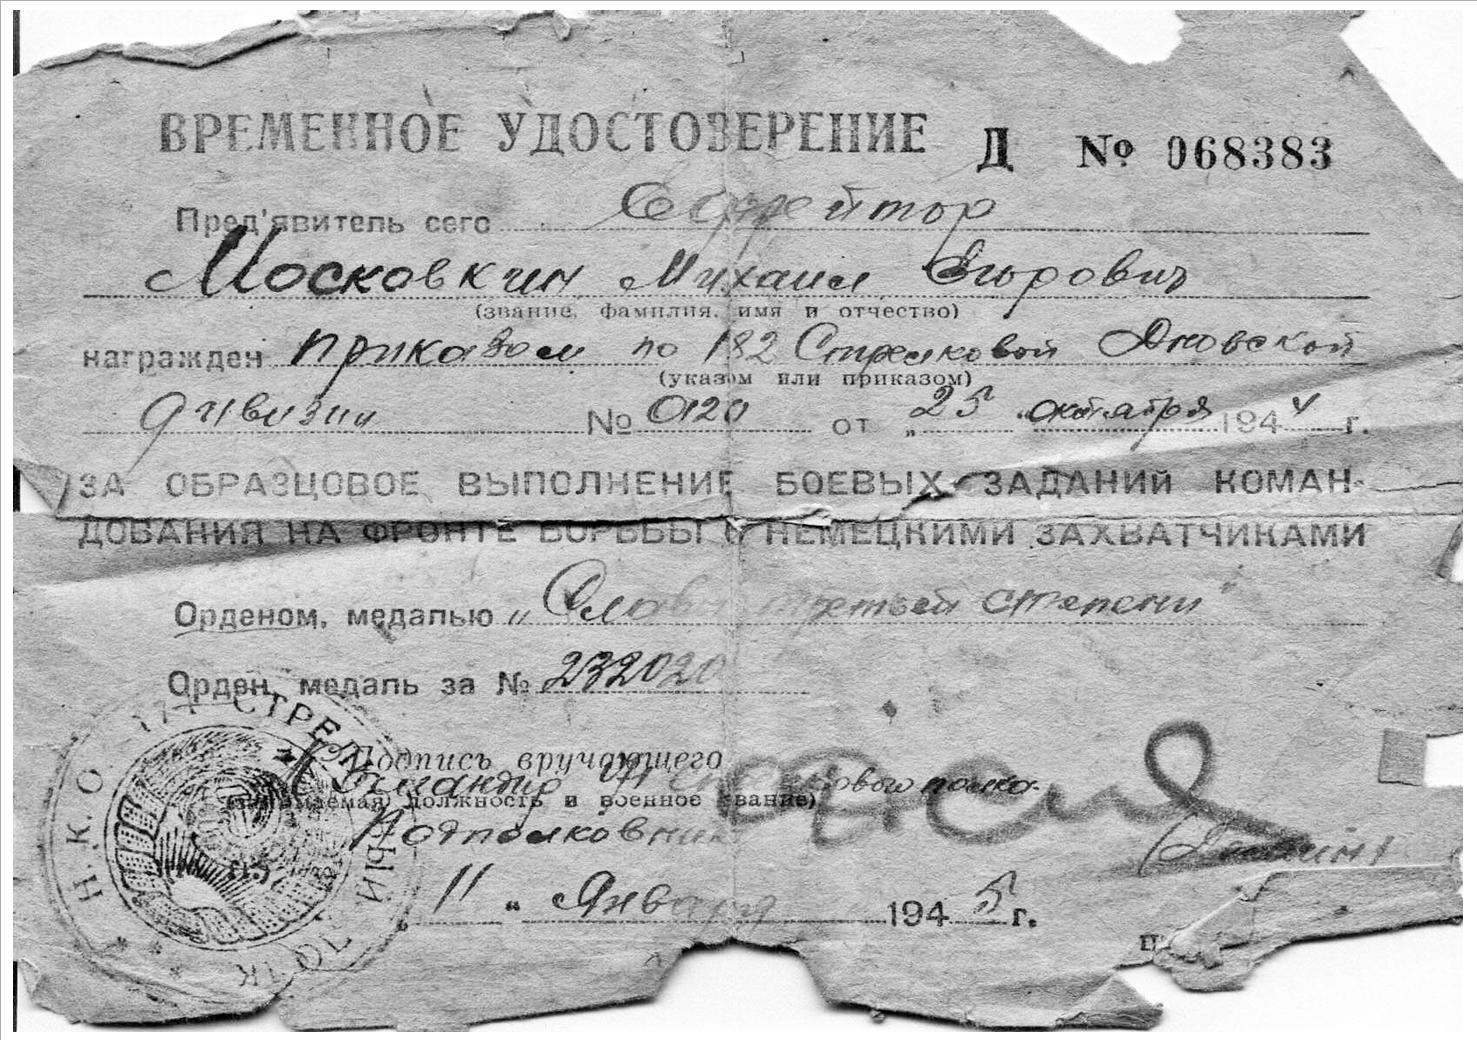 ВРЕМЕННОЕ УДОСТОВЕРЕНИЕ Д № 068383
Пред'явитель сего Ефрейтор
Московкин Михаил Егорович
(звание, фамилия, имя и отчество)
награжден приказом по 182 Стрелковой Дновской
(указом или приказом)
дивизии № 0120 от „25 октября 1944 г.
ЗА ОБРАЗЦОВОЕ ВЫПОЛНЕНИЕ БОЕВЫХ ЗАДАНИЙ КОМАН-
ДОВАНИЯ НА ФРОНТЕ БОРЬБЫ С НЕМЕЦКИМИ ЗАХВАТЧИКАМИ
Орденом, медалью „Славы третьей степени"
Орден, медаль за № 232020
Подпись вручающего
Командир 171 полка
(занимаемая должность и военное звание)
Подполковник
11 „ Января 1945 г.
Н.К.О. 171 СТРЕЛКОВЫЙ ПОЛК